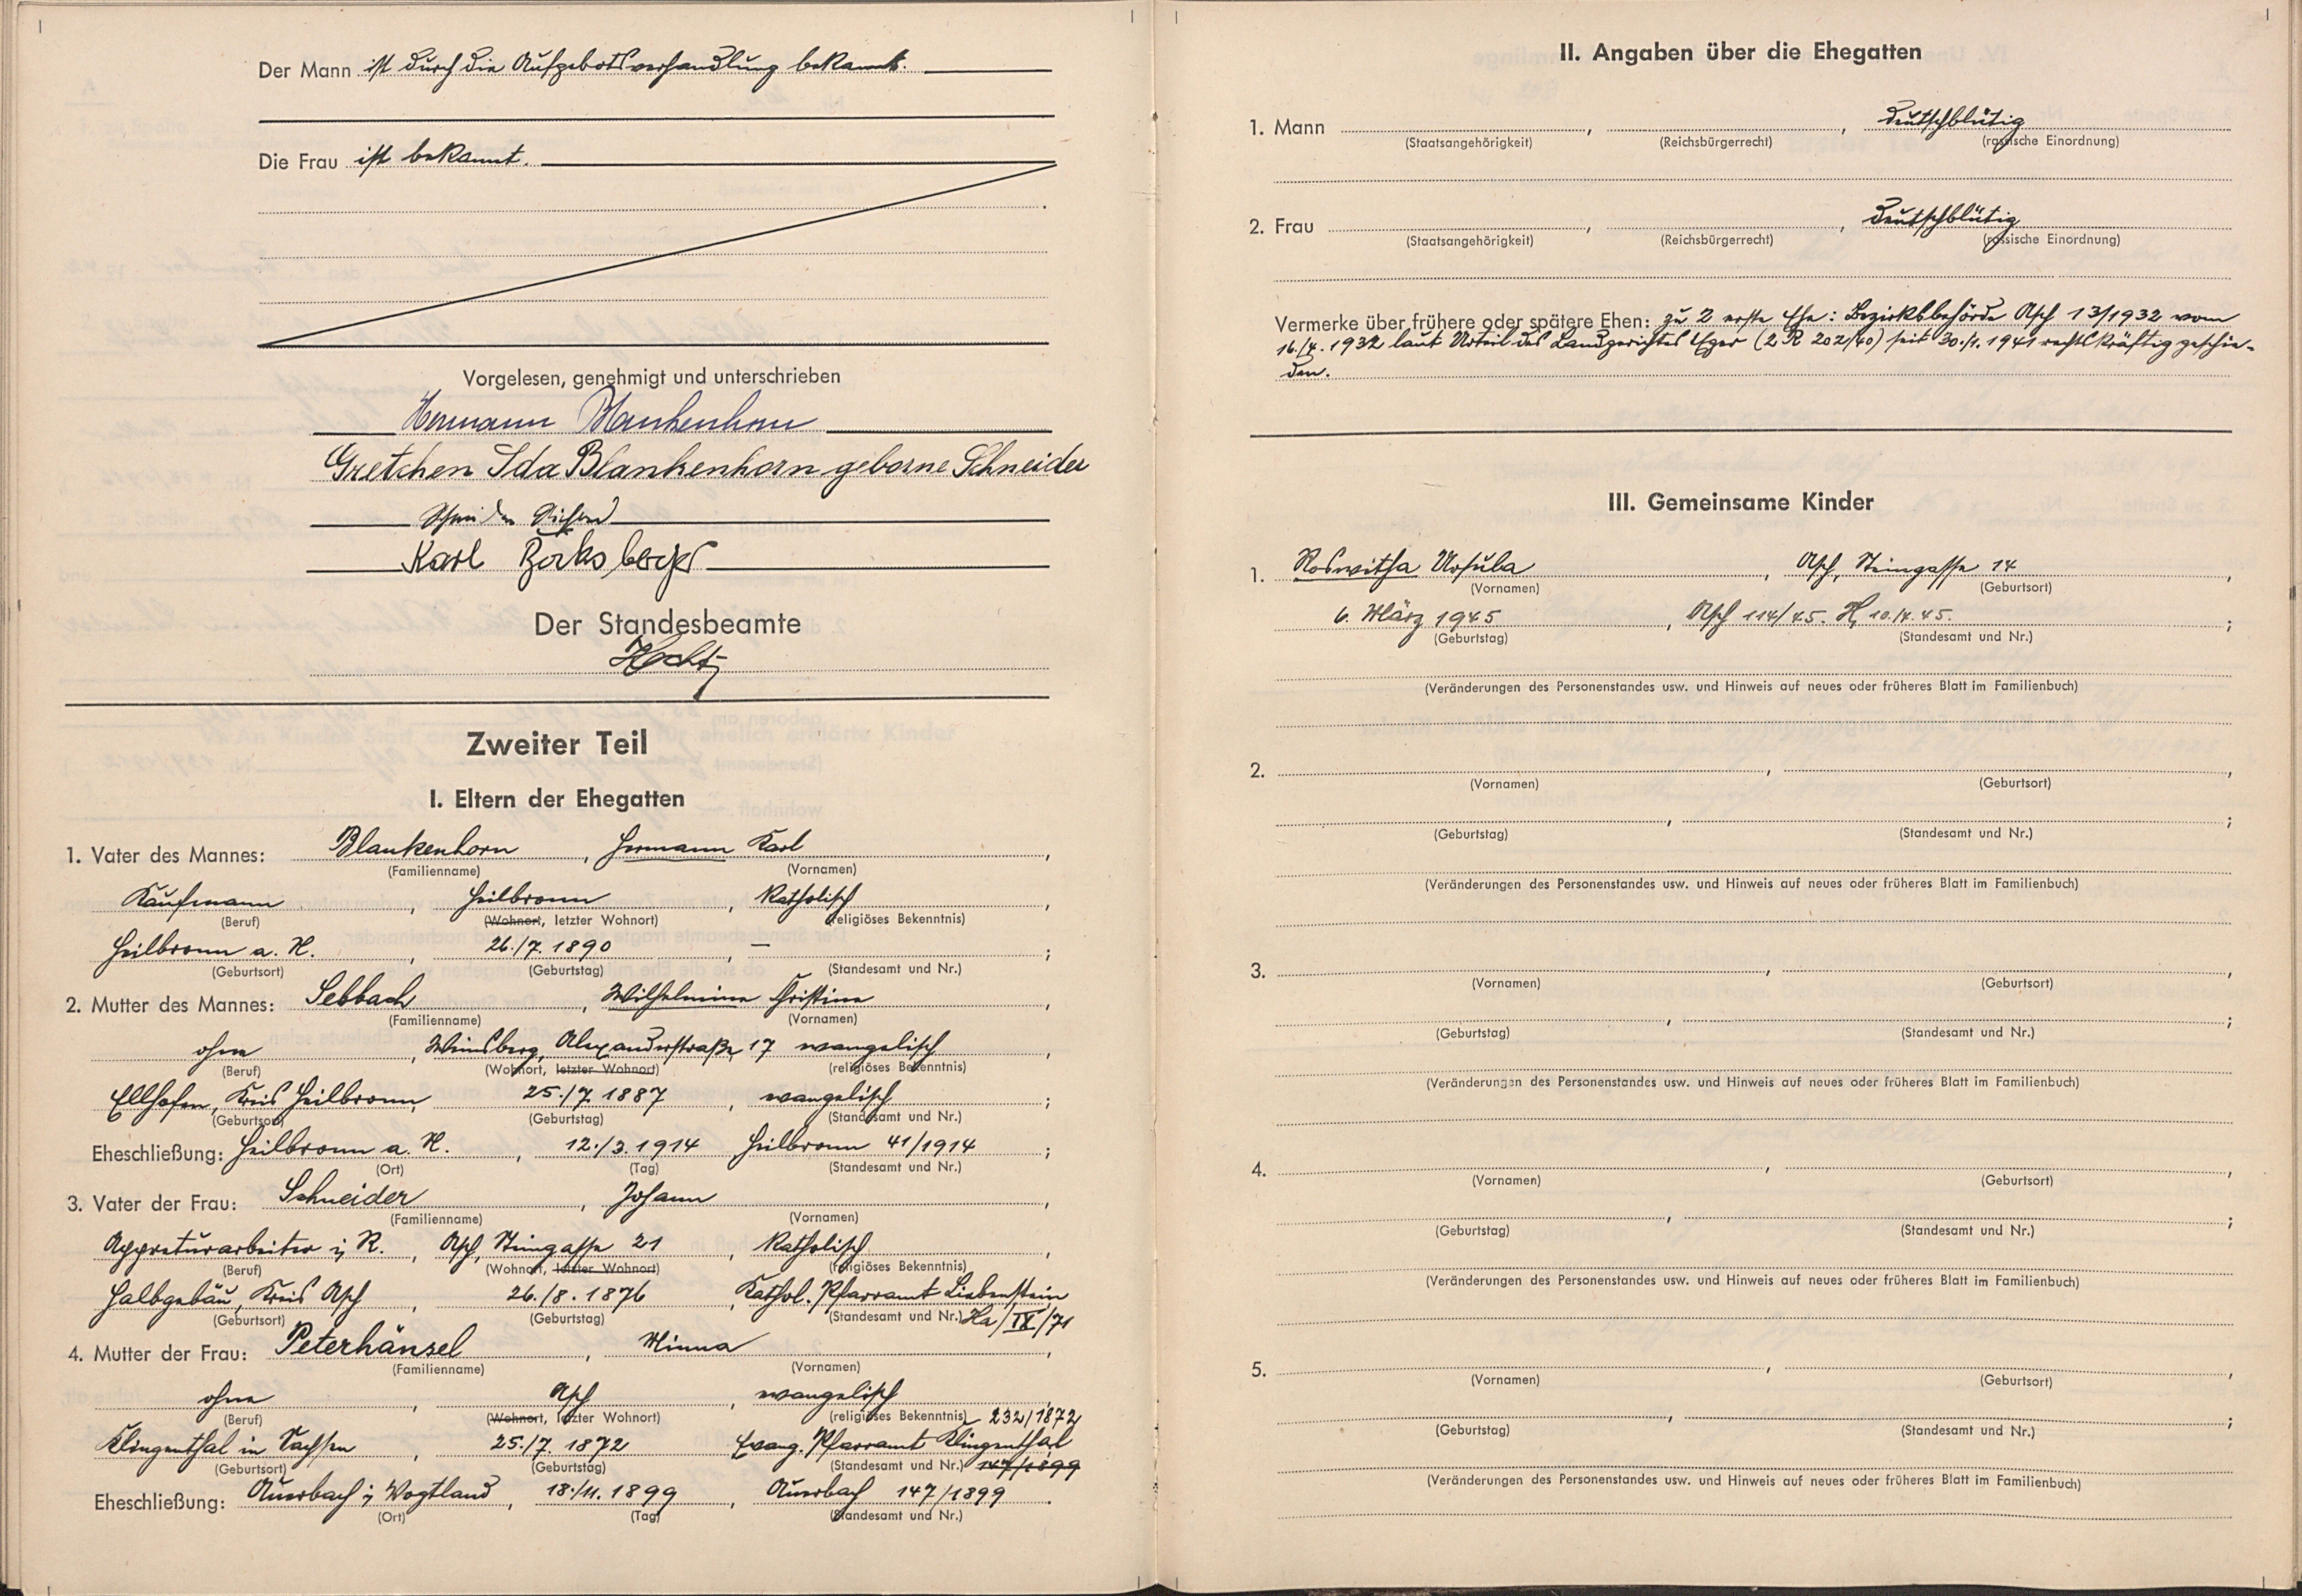 Der Mann ist durch die Aufgebotsverhandlung bekannt.
Die Frau ist bekannt.
Vorgelesen, genehmigt und unterschrieben
Hermann Blankenhorn
Gretchen Ida Blankenhorn geborne Schneider
Schneider Richard
Karl
Der Standesbeamte
Zweiter Teil
I. Eltern der Ehegatten
1. Vater des Mannes: Blankenhorn, Hermann Karl,
(Familienname) (Vornamen)
Kaufmann, Heilbronn, katholisch,
(Beruf) (Wohnort, letzter Wohnort) (religiöses Bekenntnis)
Heilbronn a. N., 26./7. 1890, — ;
(Geburtsort) (Geburtstag) (Standesamt und Nr.)
2. Mutter des Mannes: Sebbach, Wilhelmine Christine,
(Familienname) (Vornamen)
ohne, Weinsberg, Alexanderstraße 17 evangelisch,
(Beruf) (Wohnort, letzter Wohnort) (religiöses Bekenntnis)
Ellhofen, Kreis Heilbronn, 25./7. 1887, evangelisch ;
(Geburtsort) (Geburtstag) (Standesamt und Nr.)
Eheschließung: Heilbronn a. N., 12./3. 1914 Heilbronn 41/1914 ;
(Ort) (Tag) (Standesamt und Nr.)
3. Vater der Frau: Schneider, Johann,
(Familienname) (Vornamen)
Appreturarbeiter i. R., Asch, Steingasse 21, katholisch,
(Beruf) (Wohnort, letzter Wohnort) (religiöses Bekenntnis)
Halbgebäu, Kreis Asch, 26./8. 1876, Kathol. Pfarramt Liebenstein
(Geburtsort) (Geburtstag) (Standesamt und Nr.) Ha/IX/71
4. Mutter der Frau: Peterhänsel, Minna,
(Familienname) (Vornamen)
ohne, Asch, evangelisch
(Beruf) (Wohnort, letzter Wohnort) (religiöses Bekenntnis) 232/1872
Klingenthal in Sachsen, 25./7. 1872 Evang. Pfarramt Klingenthal
(Geburtsort) (Geburtstag) (Standesamt und Nr.) 147/1899
Eheschließung: Auerbach i. Vogtland, 18./11. 1899, Auerbach 147/1899.
(Ort) (Tag) (Standesamt und Nr.)
II. Angaben über die Ehegatten
1. Mann , , deutschblütig
(Staatsangehörigkeit) (Reichsbürgerrecht) (rassische Einordnung)
2. Frau , , deutschblütig
(Staatsangehörigkeit) (Reichsbürgerrecht) (rassische Einordnung)
Vermerke über frühere oder spätere Ehen: zu 2 erste Ehe: Bezirksbehörde Asch 13/1932 vom
16./4. 1932 laut Urteil des Landgerichtes Eger (2 R 202/40) seit 30./1. 1941 rechtskräftig geschie-
den.
III. Gemeinsame Kinder
1. Roswitha Ursula, Asch, Steingasse 14,
(Vornamen) (Geburtsort)
6. März 1945, Asch 114/45. H, 10./4. 45. ;
(Geburtstag) (Standesamt und Nr.)
(Veränderungen des Personenstandes usw. und Hinweis auf neues oder früheres Blatt im Familienbuch)
2. , ,
(Vornamen) (Geburtsort)
, ;
(Geburtstag) (Standesamt und Nr.)
(Veränderungen des Personenstandes usw. und Hinweis auf neues oder früheres Blatt im Familienbuch)
3. , ,
(Vornamen) (Geburtsort)
, ;
(Geburtstag) (Standesamt und Nr.)
(Veränderungen des Personenstandes usw. und Hinweis auf neues oder früheres Blatt im Familienbuch)
4. , ,
(Vornamen) (Geburtsort)
, ;
(Geburtstag) (Standesamt und Nr.)
(Veränderungen des Personenstandes usw. und Hinweis auf neues oder früheres Blatt im Familienbuch)
5. , ,
(Vornamen) (Geburtsort)
, ;
(Geburtstag) (Standesamt und Nr.)
(Veränderungen des Personenstandes usw. und Hinweis auf neues oder früheres Blatt im Familienbuch)